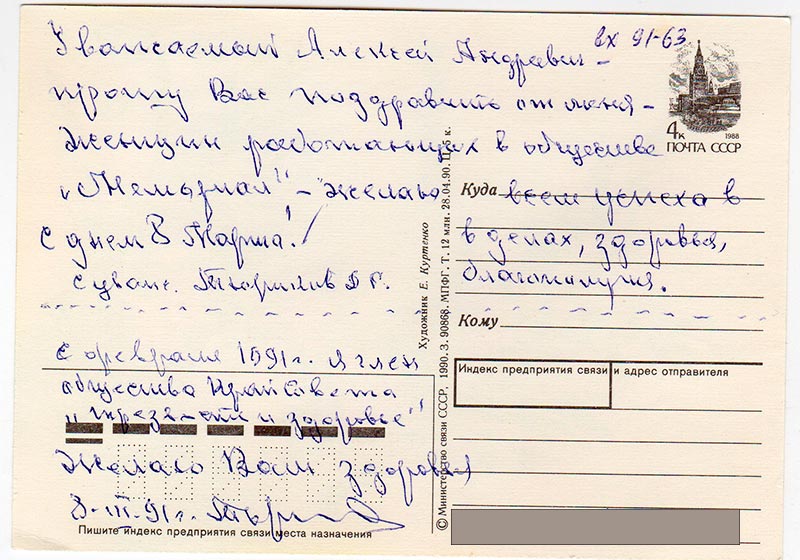 вх 91-63
Уважаемый Алексей Андреви-
прошу Вас поздравить от меня-
женщин работающих в обществе
"Мемориал" - желаю
с днем 8 Марта!
с уваж.
всем успеха в
в делах, здоровья,
благополучия.
4к
1988
ПОЧТА СССР
Куда
Кому
Индекс предприятия связи и адрес отправителя
Художник Е. Куртенко
© Министерство связи СССР. 1990. З. 90868. МПФГ. Т. 12 млн. 28.04.90. Ц. к.
С февраля 1991г. я член
общества
"трезвости и здоровье"
желаю Вам здоровья
8-III-91г.
Пишите индекс предприятия связи места назначения